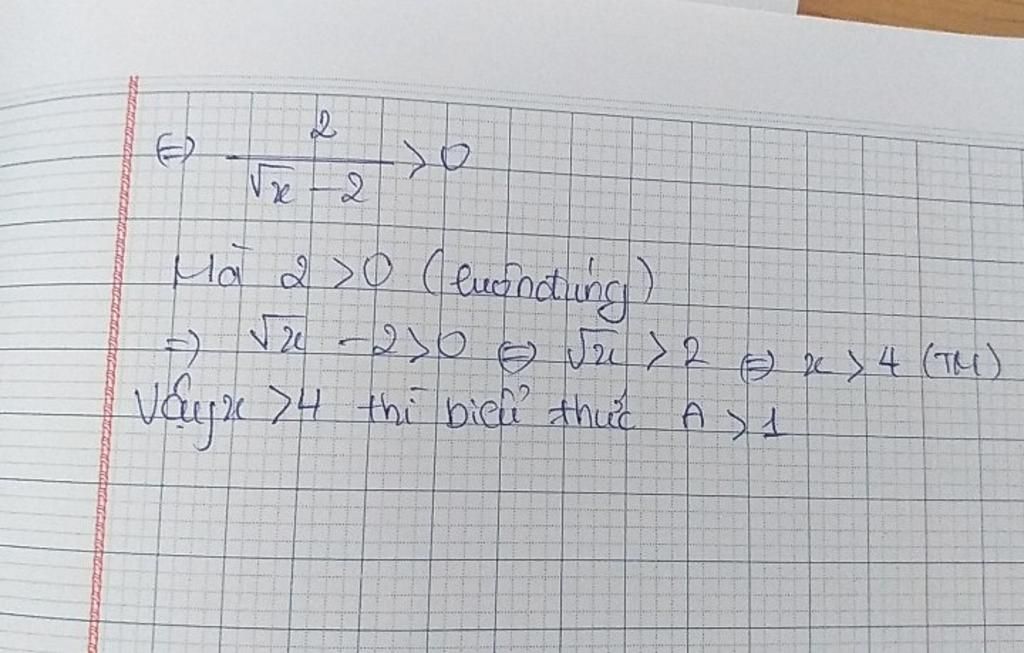 ⇔ 2/(√x - 2) > 0
Mà 2 > 0 (luôn đúng)
⇒ √x - 2 > 0 ⇔ √x > 2 ⇔ x > 4 (TM)
Vậy x > 4 thì biểu thức A > 1